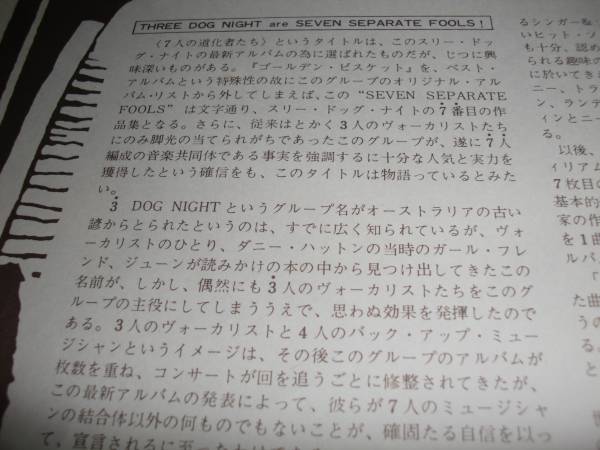 THREE DOG NIGHT are SEVEN SEPARATE FOOLS!
〈7人の道化者たち〉というタイトルは、このスリー・ドッ
グ・ナイトの最新アルバムの為に選ばれたものだが、じつに興
味深いものがある。『ゴールデン・ビスケット』を、ベスト・
アルバムという特殊性の故にこのグループのオリジナル・アル
バム・リストから外してしまえば、この“SEVEN SEPARATE
FOOLS”は文字通り、スリー・ドッグ・ナイトの7番目の作
品集となる。さらに、従来はとかく3人のヴォーカリストたち
にのみ脚光の当てられがちであったこのグループが、遂に7人
編成の音楽共同体である事実を強調するに十分な人気と実力を
獲得したという確信をも、このタイトルは物語っているとみた
い。
3 DOG NIGHTというグループ名がオーストラリアの古い
諺からとられたというのは、すでに広く知られているが、ヴォ
ーカリストのひとり、ダニー・ハットンの当時のガール・フレ
ンド、ジューンが読みかけの本の中から見つけ出してきたこの
名前が、しかし、偶然にも3人のヴォーカリストたちをこのグ
ループの主役にしてしまううえで、思わぬ効果を発揮したので
ある。3人のヴォーカリストと4人のバック・アップ・ミュー
ジシャンというイメージは、その後このグループのアルバムが
枚数を重ね、コンサートが回を追うごとに修整されてきたが、
この最新アルバムの発表によって、彼らが7人のミュージシャ
ンの結合体以外の何ものでもないことが、確固たる自信を以っ
て、宣言されるに至ったわけである
るシンガー&
いヒット・ソ
も十分、認め
られる趣味の
に於いてき
ニー、トラ
ン、ランデ
ィンとニー
る。
以後、
ィリアム
7枚目の
基本的
家の作
を1曲
ルバム
た曲
うの
る。